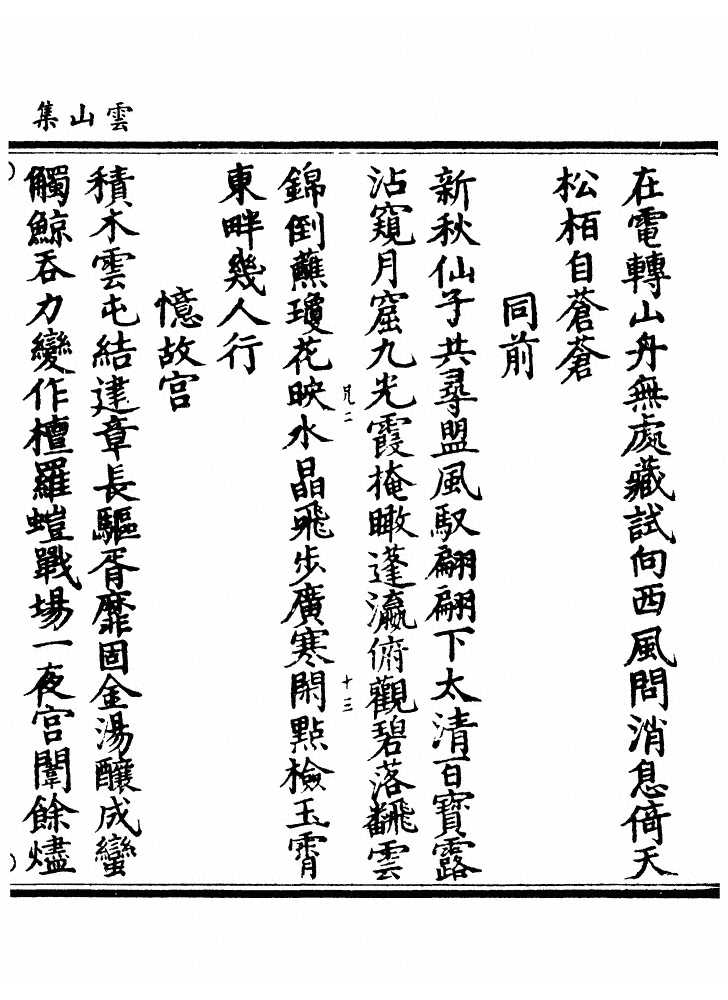 雲山集
在電轉山舟無處藏試向西風問消息倚天
松栢自蒼蒼
同前
新秋仙子共尋盟風馭翩翩下太清百寶露
沾窺月窟九光霞掩瞰蓬瀛俯觀碧落飜雲
凡二
十三
錦倒蘸瓊花映水晶飛步廣寒閑點檢玉霄
東畔幾人行
憶故宫
積木雲屯結建章長驅胥靡固金湯釀成蠻
觸鯨吞力變作檀羅螘戰場一夜宫闈餘燼